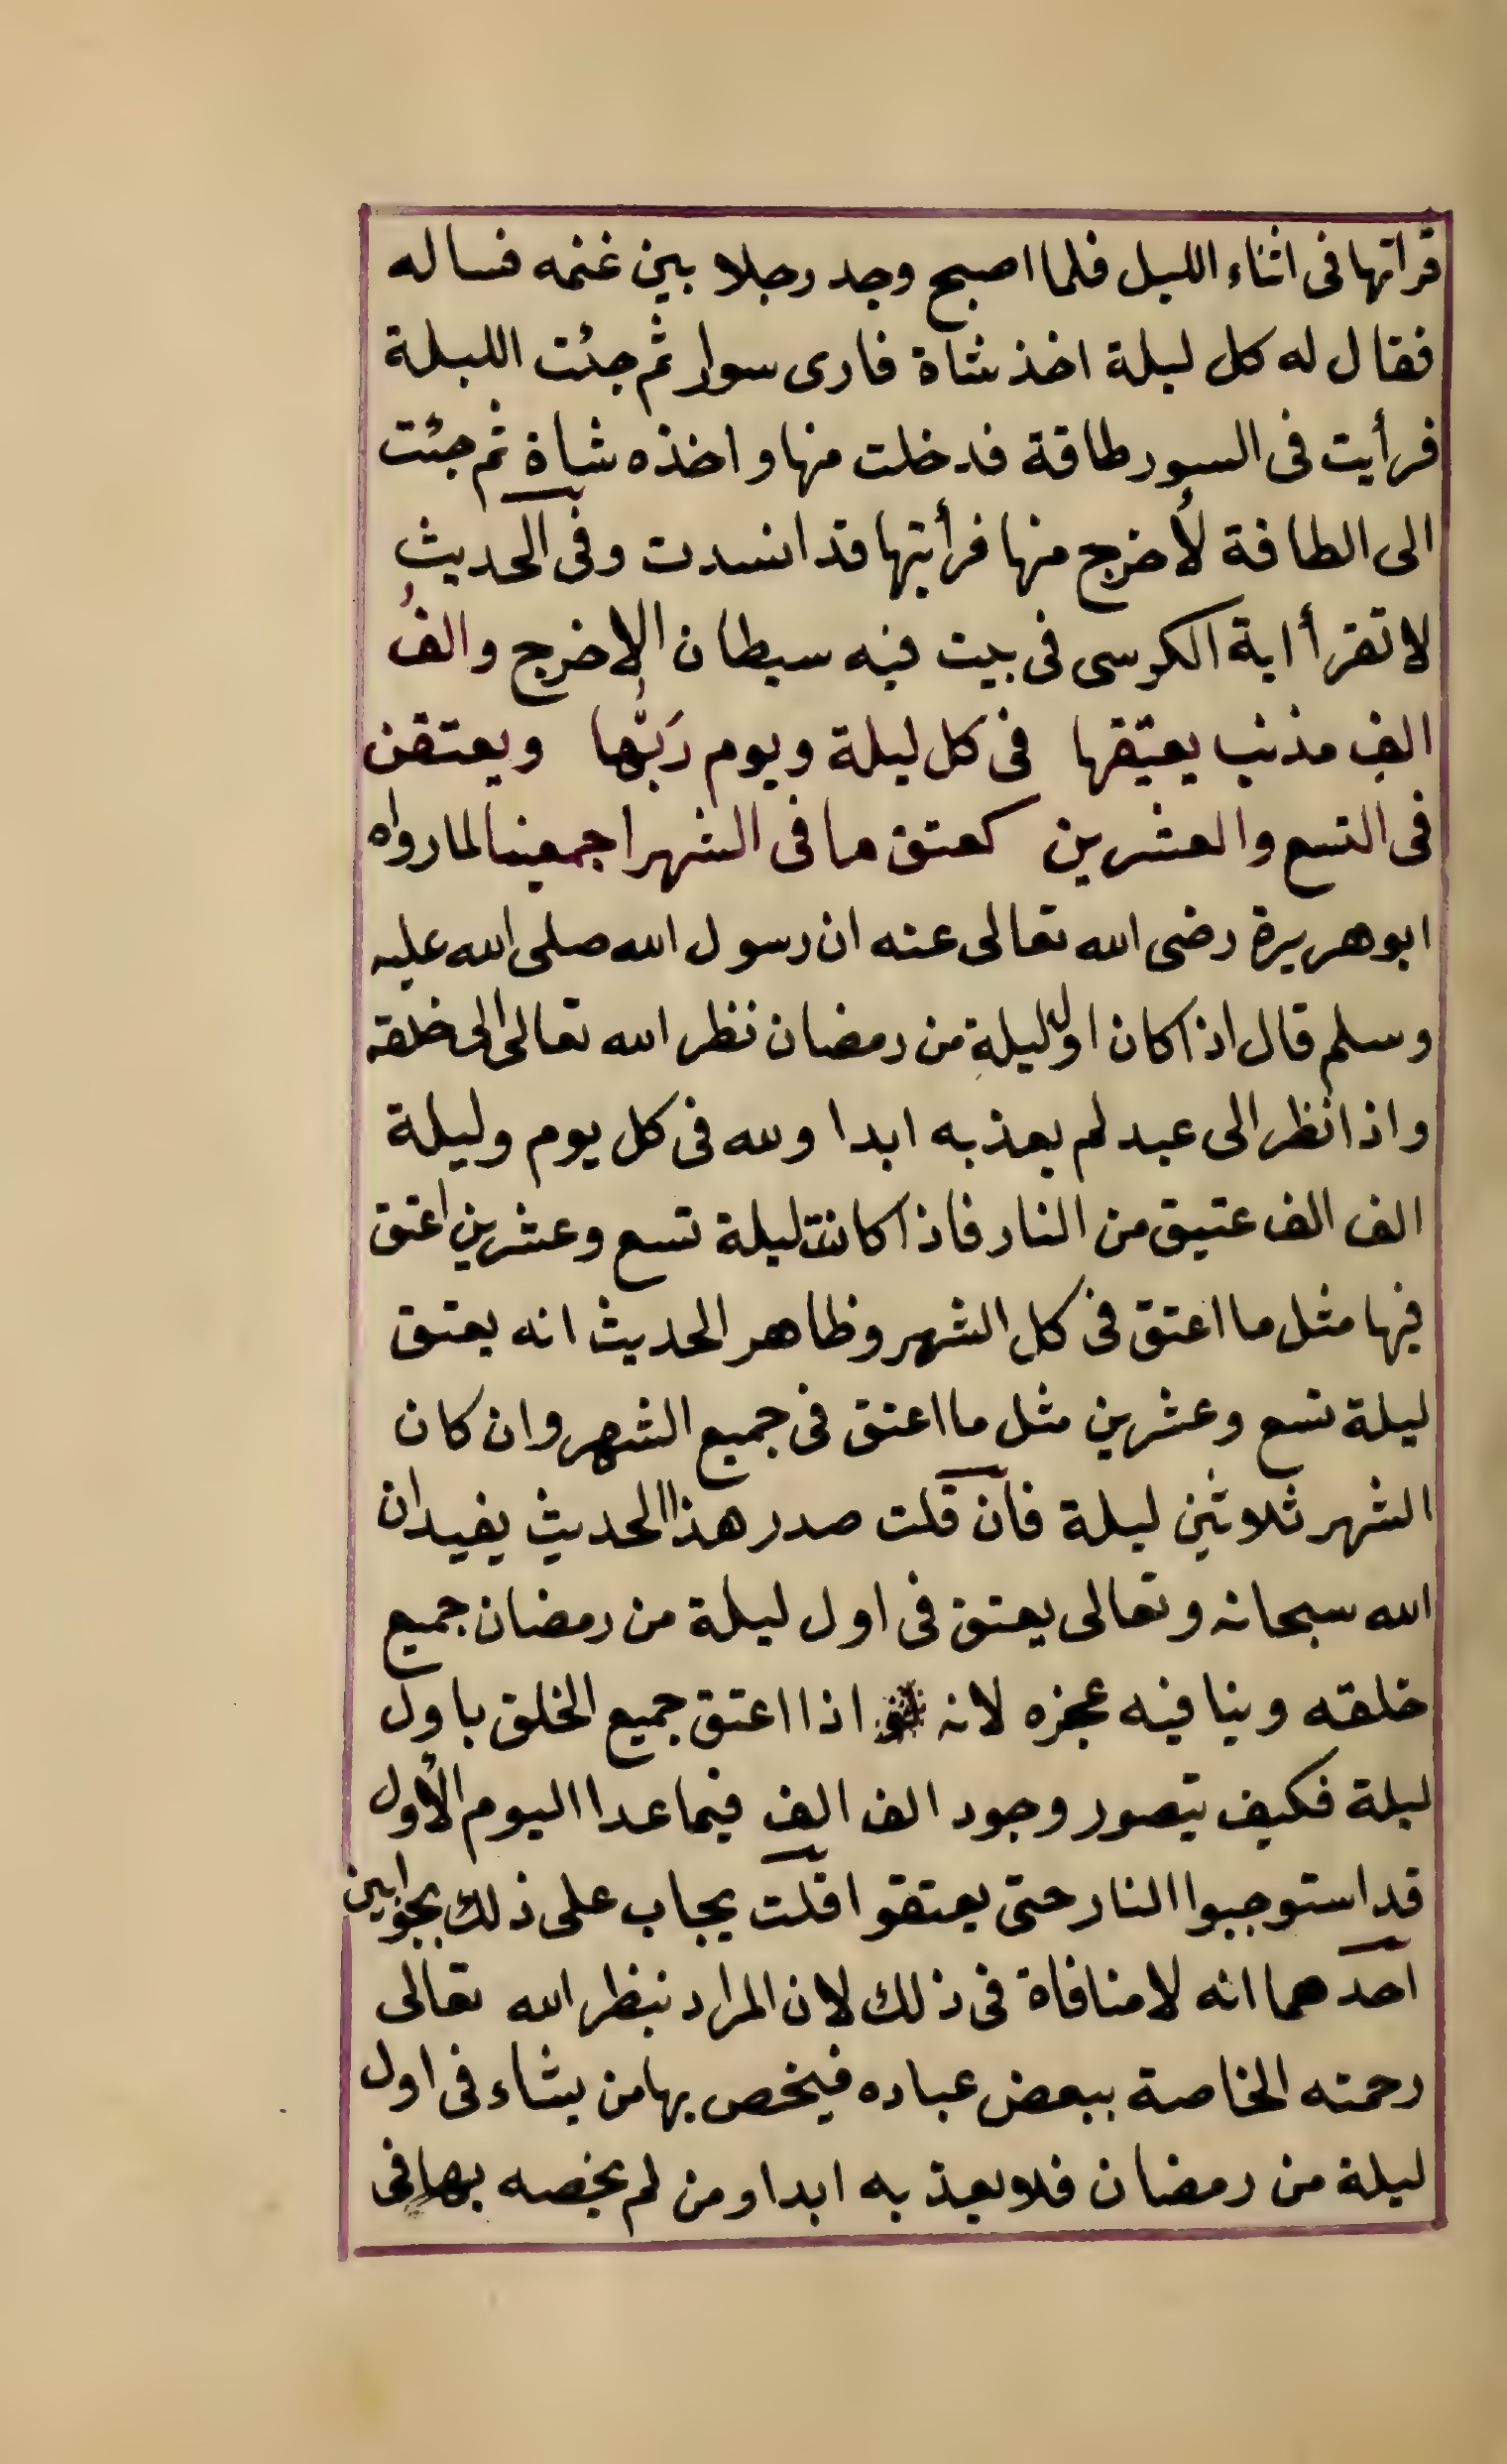 قراتها فى اثناء الليل فلما اصبح وجد رجلا بين غنمه فساله
فقال له كل ليلة اخذ شاة فارى سوار ثم جئت الليلة
فرأيت فى السور طاقة فدخلت منها واخذه شاة ثم جئت
الى الطاقة لأخرج منها فرأيتها قد انسدت وفى الحديث
لا تقرأ اية الكرسى فى بيت فيه سيطان الا خرج والفُ
الفِ مذنب يعتقها فى كل ليلة ويوم رَبُّها ويعتقن
فى التسع والعشرين كعتق ما فى الشهر اجمعينا لما رواه
ابو هريرة رضى الله تعالى عنه ان رسول الله صلى الله عليه
وسلم قال اذا كان اول ليلة من رمضان نظر الله تعالى الى خلقه
واذا نظر الى عبد لم يعذبه ابدا ولله فى كل يوم وليلة
الف الف عتيق من النار فاذا كانت ليلة تسع وعشرين اعتق
فيها مثل ما اعتق فى كل الشهر وظاهر الحديث انه يعتق
ليلة تسع وعشرين مثل ما اعتق فى جميع الشهر وان كان
الشهر ثلاثين ليلة فان قلت صدر هذا الحديث يفيد ان
الله سبحانه وتعالى يعتق فى اول ليلة من رمضان جميع
خلقه وينافيه عجزه لانه اذا اعتق جميع الخلق باول
ليلة فكيف يتصور وجود الف الف فيما عدا اليوم الأول
قد استوجبوا النار حتى يعتقوا قلت يجاب على ذلك بجوابين
احدهما انه لا منافاة فى ذلك لان المراد بنظر الله تعالى
رحمته الخاصة ببعض عباده فيخص بها من يشاء فى اول
ليلة من رمضان فلا يعذبه ابدا ومن لم يخصه بها فى